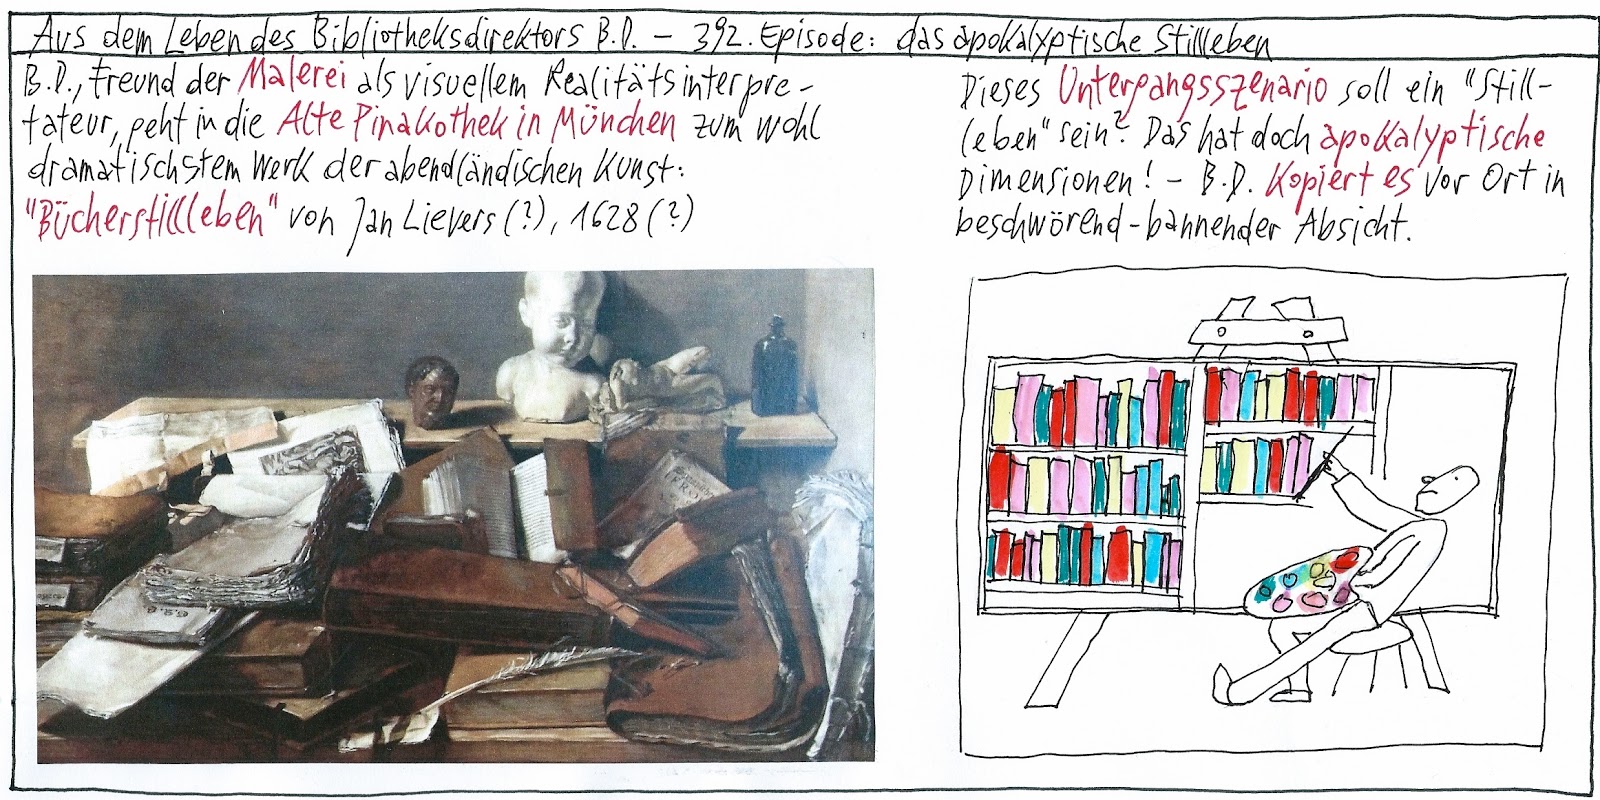 Aus dem Leben des Bibliotheksdirektors B.D. – 392. Episode: das apokalyptische Stillleben
B.D., Freund der Malerei als visuellem Realitätsinterpre-
tateur, geht in die Alte Pinakothek in München zum wohl
dramatischstem Werk der abendländischen Kunst:
"Bücherstillleben" von Jan Lievers (?), 1628 (?)
Dieses Untergangsszenario soll ein "Still-
leben" sein? Das hat doch apokalyptische
Dimensionen! – B.D. kopiert es vor Ort in
beschwörend-bannender Absicht.